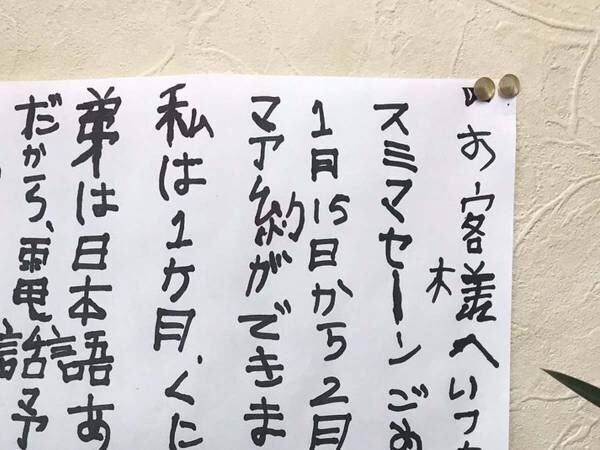 お客様へいつ
スミマセーンごめ
1月15日から2月
予約ができま
私は1ケ月、くに
弟は日本語あ
だから、電話予